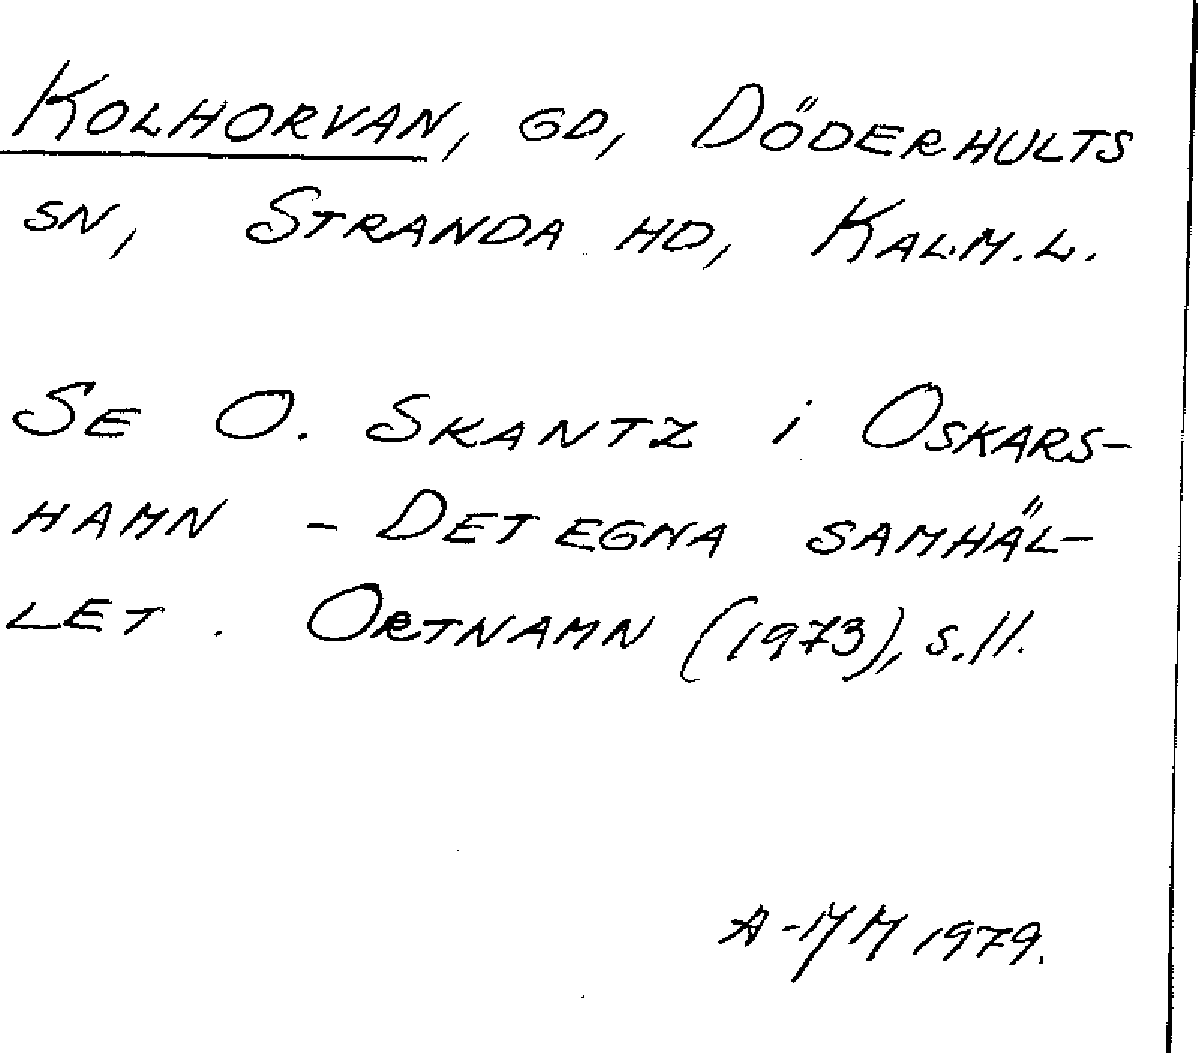 KOLHORVAN, GD, DÖDERHULTS
SN, STRANDA HD, KALM.L.
SE O. SKANTZ i OSKARS-
HAMN - DET EGNA SAMHÄL-
LET. ORTNAMN (1973), s.11.
A-MM 1979.